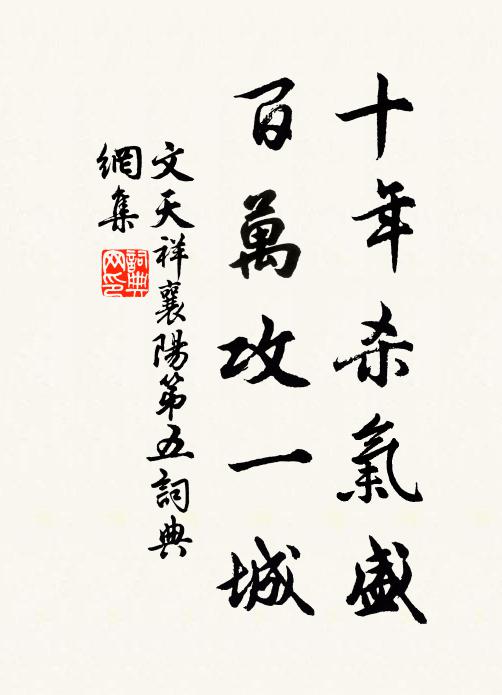 十年杀氣盛
百萬攻一城
文天祥襄陽第五詞典
網集
詞典
网印